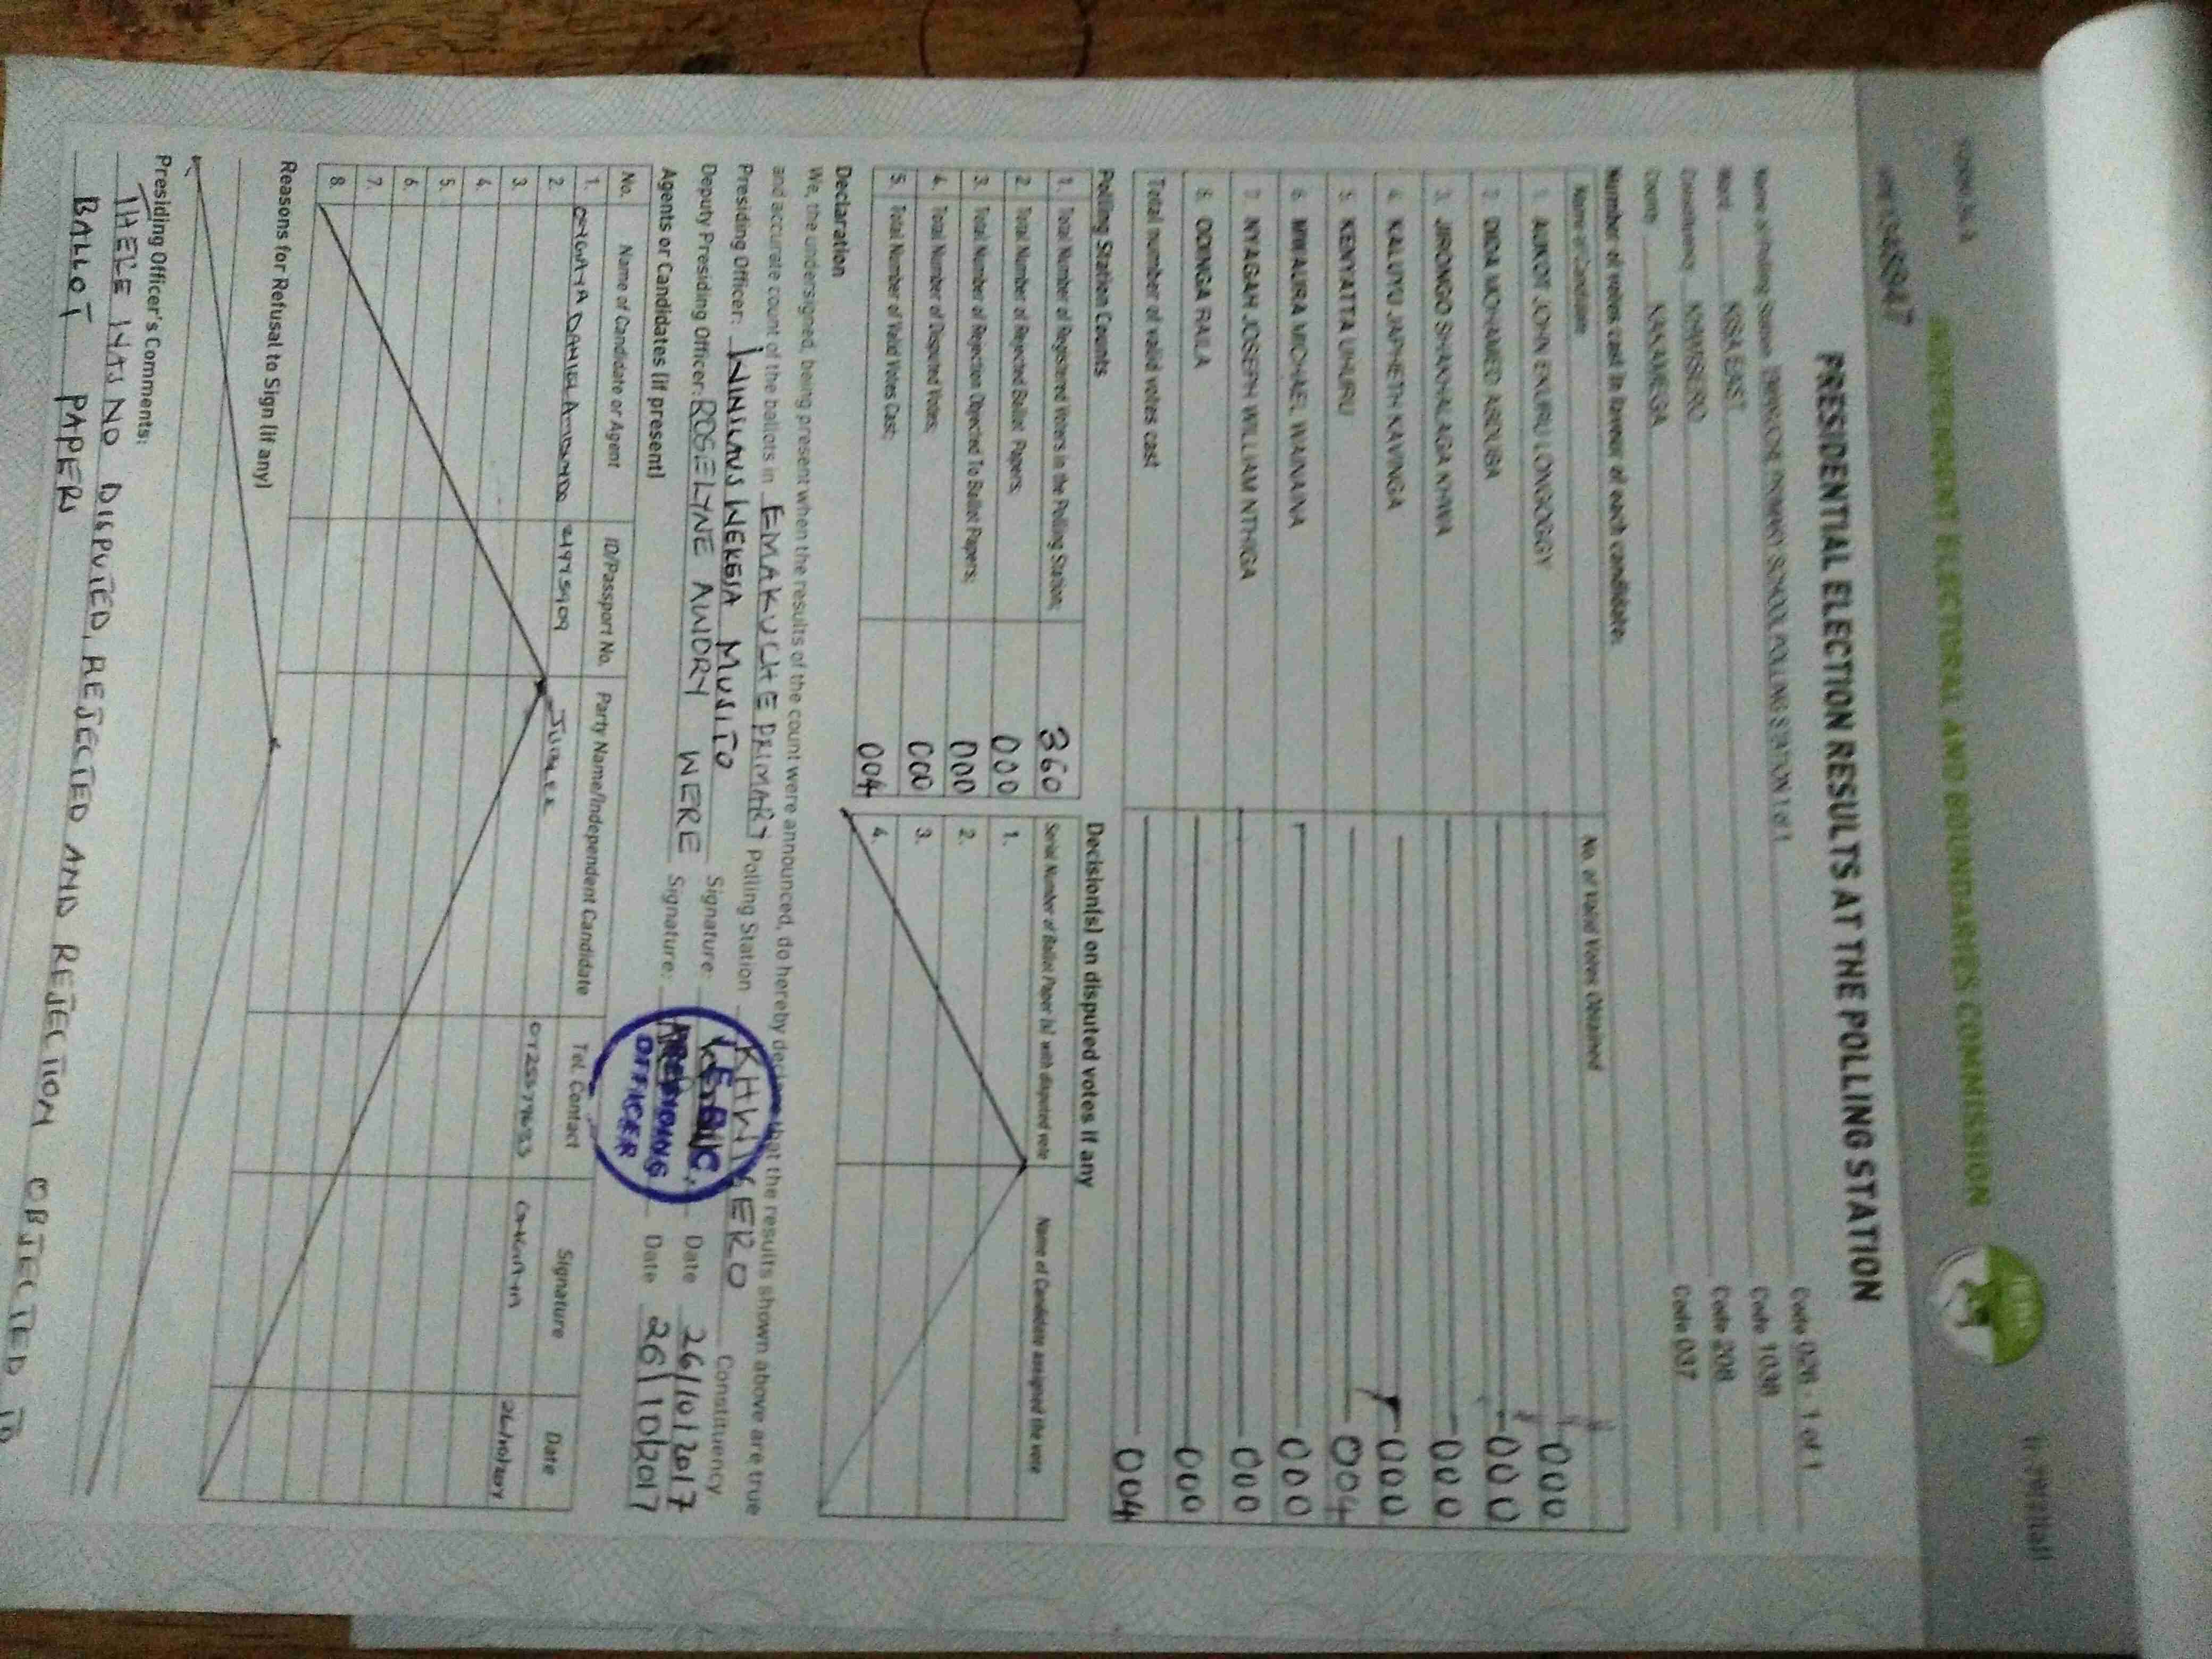 INDEPENDENT ELECTORAL AND BOUNDARIES COMMISSION
PRESIDENTIAL ELECTION RESULTS AT THE POLLING STATION
Name of Polling Station PRIMARY SCHOOL POLLING STATION 1 of 1 Code 028 - 1 of 1
Ward KISA EAST Code 1038
Constituency KHWISERO Code 208
County KAKAMEGA Code 037
Number of votes cast in favour of each candidate:
Name of Candidate No. of Valid Votes Obtained
1. AUKOT JOHN EKURU LONGOGGY 000
2. DIDA MOHAMED ABDUBA 000
3. JIRONGO SHAKHALAGA KHWA 000
4. KALUYU JAPHETH KAVINGA 000
5. KENYATTA UHURU 004
6. MWAURA MICHAEL WAINAINA 000
7. NYAGAH JOSEPH WILLIAM NTHIGA 000
8. ODINGA RAILA 000
Total number of valid votes cast 004
Polling Station Counts
1. Total Number of Registered Voters in the Polling Station; 360
2. Total Number of Rejected Ballot Papers; 000
3. Total Number of Rejection Objected To Ballot Papers; 000
4. Total Number of Disputed Votes; 000
5. Total Number of Valid Votes Cast; 004
Decision(s) on disputed votes if any
Serial Number of Ballot Paper (s) with disputed vote Name of Candidate assigned the vote
1.
2.
3.
4.
Declaration
We, the undersigned, being present when the results of the count were announced, do hereby declare that the results shown above are true
and accurate count of the ballots in EMAKUCHE PRIMARY Polling Station KHWISERO Constituency
Presiding Officer: WINSLAUS WEKESA MUSITO Signature: Date 26/10/2017
Deputy Presiding Officer: ROSELYNE AUDRY WERE Signature: Date 26/10/2017
PRESIDING
OFFICER
Agents or Candidates (if present)
No. Name of Candidate or Agent ID/Passport No. Party Name/Independent Candidate Tel. Contact Signature Date
1. DANIEL 21975909 JUBILEE 26/10/2017
2.
3.
4.
5.
6.
7.
8.
Reasons for Refusal to Sign (if any)
Presiding Officer's Comments:
THERE WAS NO DISPUTED, REJECTED AND REJECTION OBJECTED TO
BALLOT PAPERS